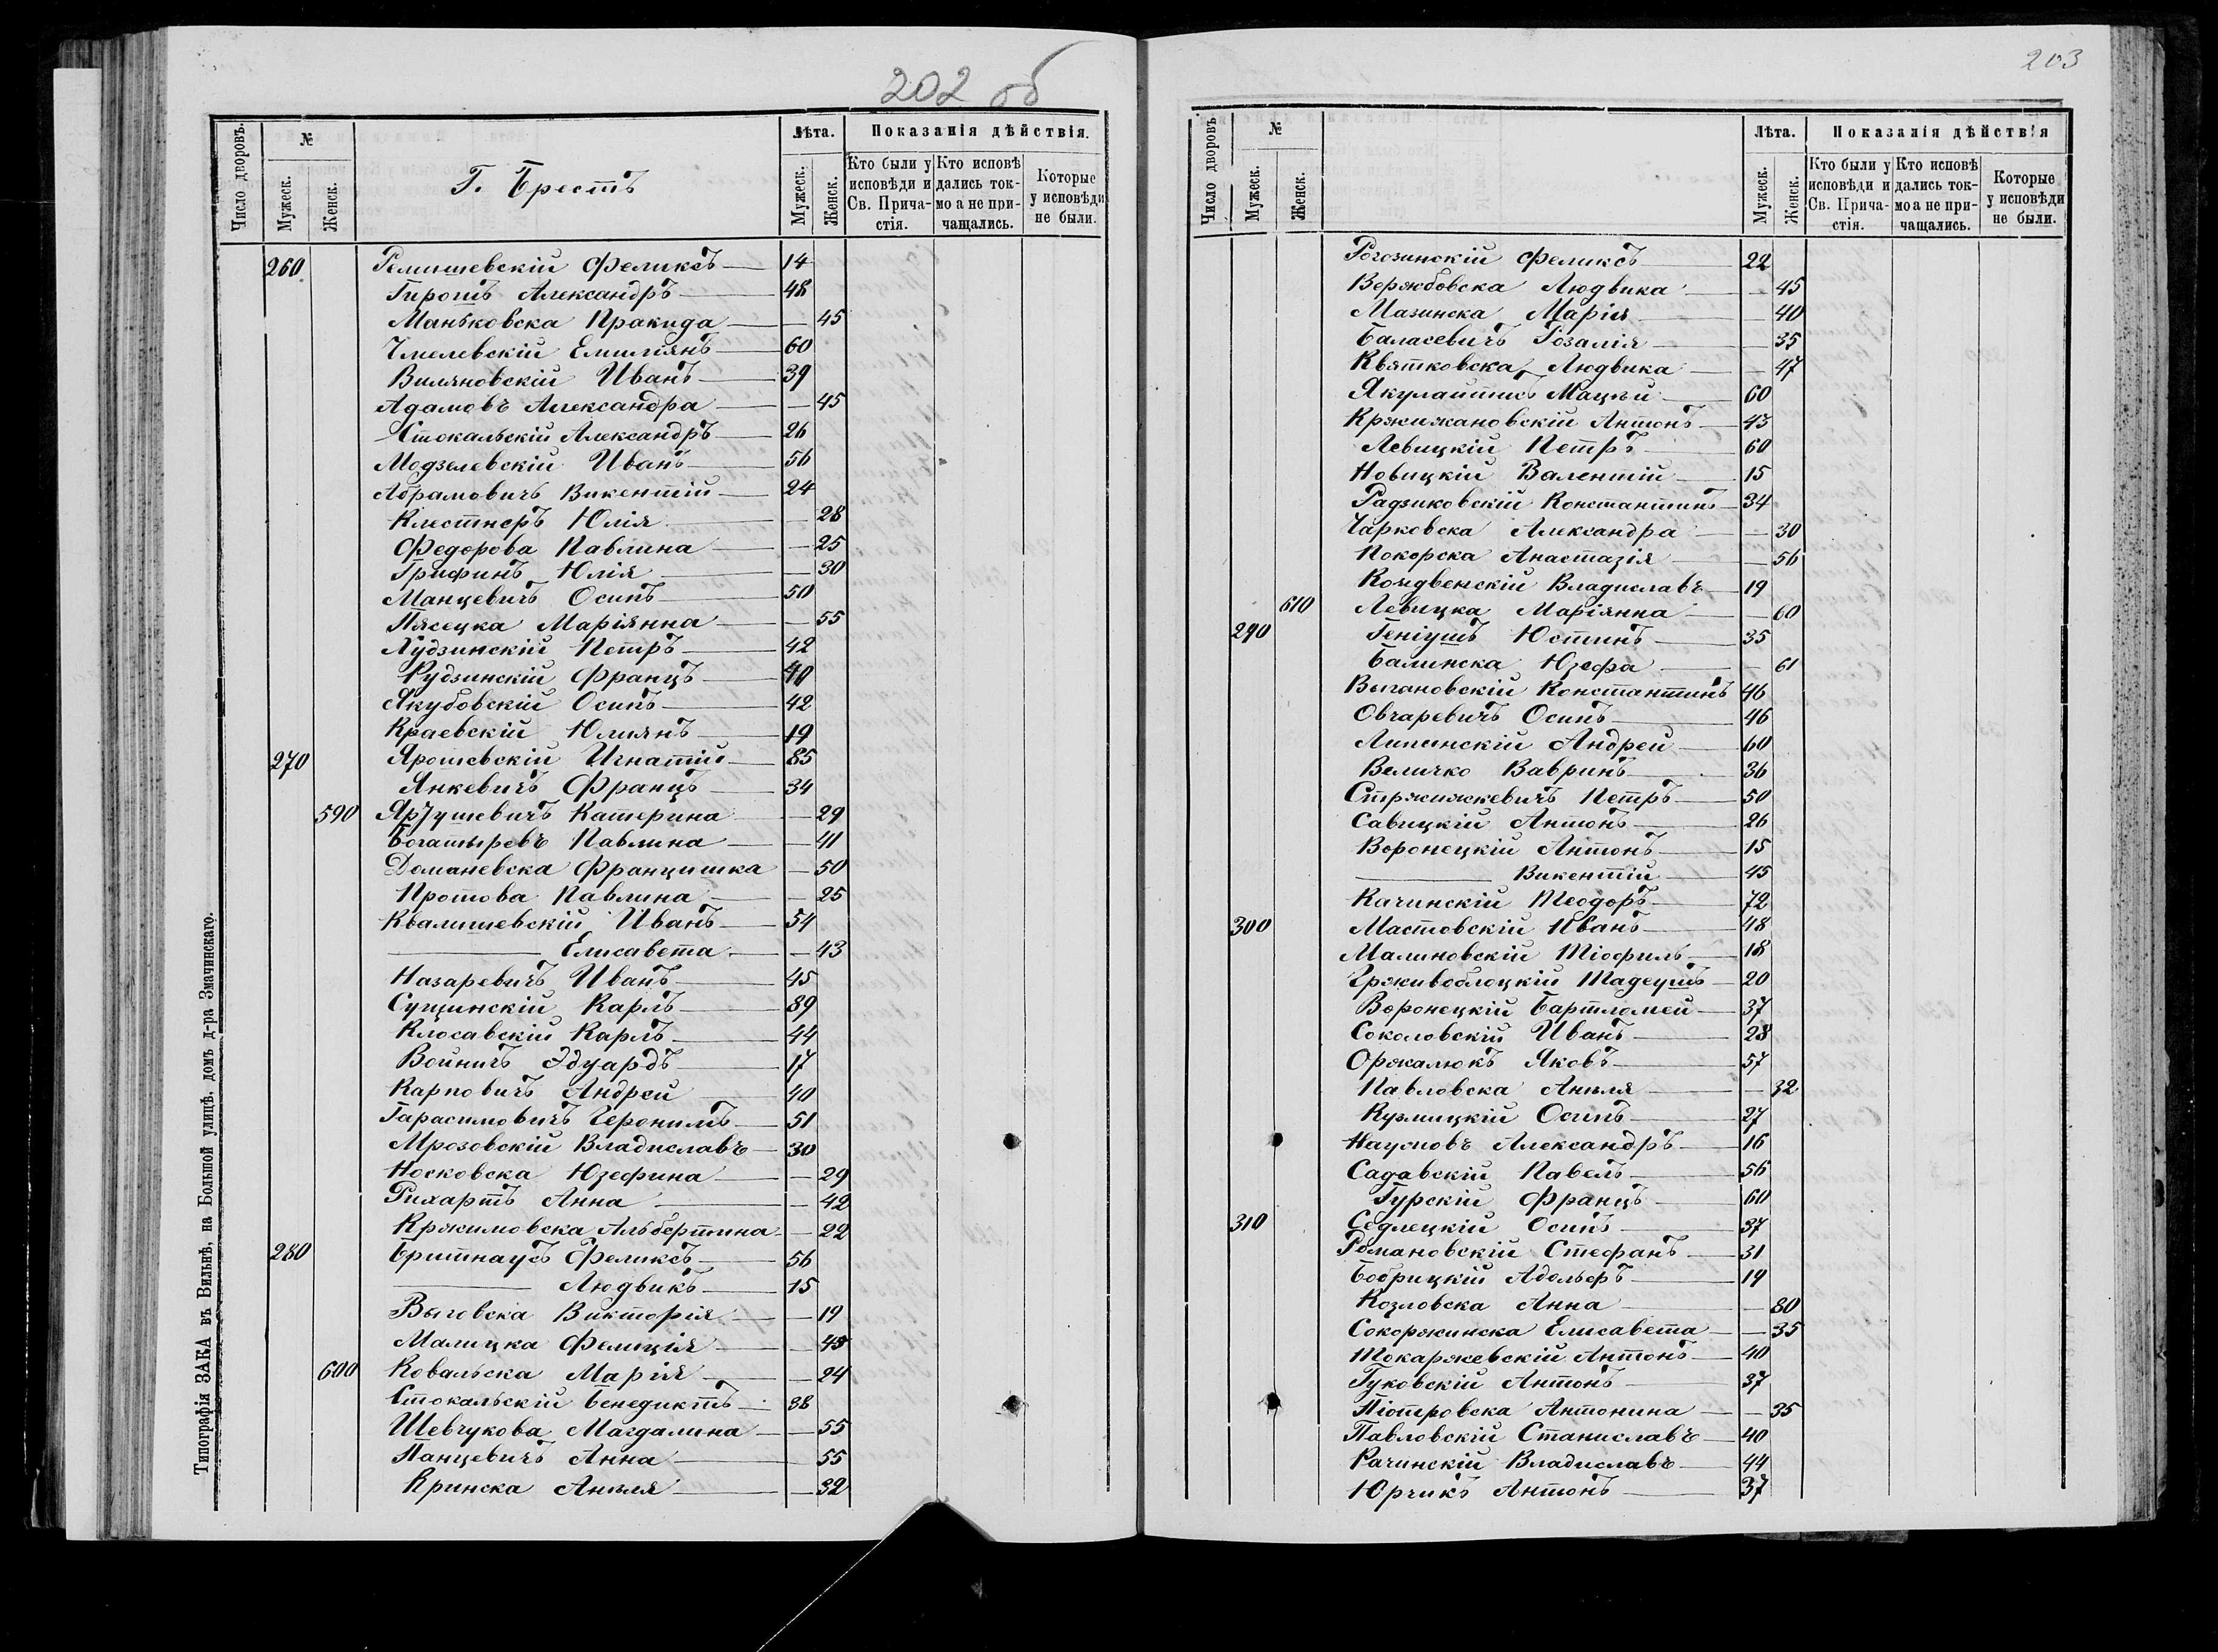 202 об
Число дворовъ.
№
Мужеск.
Женск.
Г. Брестъ
Лѣта.
Мужеск.
Женск.
Показанія дѣйствія.
Кто были у исповѣди и Св. Прича-стія.
Кто исповѣ дались ток-мо а не при-чащались.
Которые у исповѣди не были.
260 Ремишевскій Феликсъ 14
Гиротъ Александръ 48
Маньковска Пракида 45
Чмелевскій Емиліянъ 60
Виляновскій Иванъ 39
Адамовъ Александра 45
Стокальскій Александръ 26
Модзелевскій Иванъ 56
Абрамовичъ Викентій 24
Клестнеръ Юлія 28
Федорова Павлина 25
Грифинъ Юлія 30
Манцевичъ Осипъ 50
Пясецка Маріянна 55
Лудзинскій Петръ 42
Рудзинскій Францъ 40
Якубовскій Осипъ 42
Краевскій Юліянъ 19
270 Ярошевскій Игнатій 85
Янкевичъ Францъ 34
590 Ярушевичъ Катерина 29
Богатыревъ Павлина 41
Доманевска Францишка 50
Протова Павлина 25
Квалишевскій Иванъ 54
Елисавета 43
Назаревичъ Иванъ 45
Сущинскій Карлъ 89
Клосавскій Карлъ 44
Войничъ Эдуардъ 17
Карповичъ Андрей 40
Гарасимовичъ Іеронимъ 51
Мрозовскій Владиславъ 30
Носковска Юзефина 29
Рихартъ Анна 42
Кржимовска Альбертина 22
280 Бритнаусъ Феликсъ 56
Людвикъ 15
Выговска Викторія 19
Малицка Фелиція 43
600 Ковальска Марія 24
Стокальскій Бенедиктъ 38
Шевчукова Магдалина 55
Панцевичъ Анна 55
Кринска Анъля 32
Типографія ЗАКА въ Вильнѣ, на Большой улицѣ, домъ д-ра Змачинскаго.
203
Число дворовъ
№
Мужеск.
Женск.
Лѣта.
Мужеск.
Женск.
Показанія дѣйствія
Кто были у исповѣди и Св. Прича-стія.
Кто исповѣ дались ток-мо а не при-чащались.
Которые у исповѣди не были.
Рогозинскій Феликсъ 22
Вержбовска Людвика 45
Мазинска Марія 40
Баласевичъ Розалія 35
Квятковска Людвика 47
Якулайтисъ Мацѣй 60
Кржижановскій Антонъ 43
Левицкій Петръ 60
Новицкій Валентій 15
Радзиковскій Константинъ 34
Чарковска Александра 30
Покорска Анастазія 56
Кондвенскій Владиславъ 19
610 Левицка Маріянна 60
290 Геніушъ Юстинъ 35
Балинска Юзефа 61
Выгановскій Константинъ 46
Овчаревичъ Осипъ 46
Липинскій Андрей 60
Величко Вавринъ 36
Стржижкевичъ Петръ 50
Савицкій Антонъ 26
Воронецкій Антонъ 15
Викентій 45
Качинскій Теодоръ 72
300 Мастовскій Иванъ 48
Малиновскій Тіофиль 18
Крживоблоцкій Тадеушъ 20
Воронецкій Бартломей 37
Соколовскій Иванъ 28
Оржалюкъ Яковъ 57
Павловска Анъля 32
Кузмицкій Осипъ 27
Наумовъ Александръ 16
Садавскій Павелъ 56
Гурскій Францъ 60
310 Седлецкій Осипъ 37
Романовскій Стефанъ 31
Бобрицкій Адольфъ 19
Козловска Анна 80
Сокоржинска Елисавета 35
Токаржевскій Антонъ 40
Гуковскій Антонъ 37
Піотровска Антонина 35
Павловскій Станиславъ 40
Рачинскій Владиславъ 44
Юрчикъ Антонъ 37